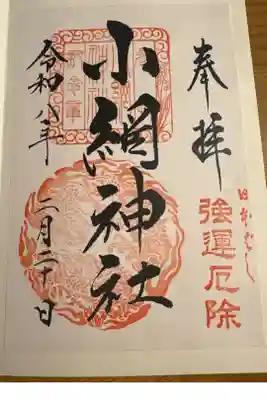 奉拝
日本橋
強運厄除
小網神社
令和八年
二月二十日